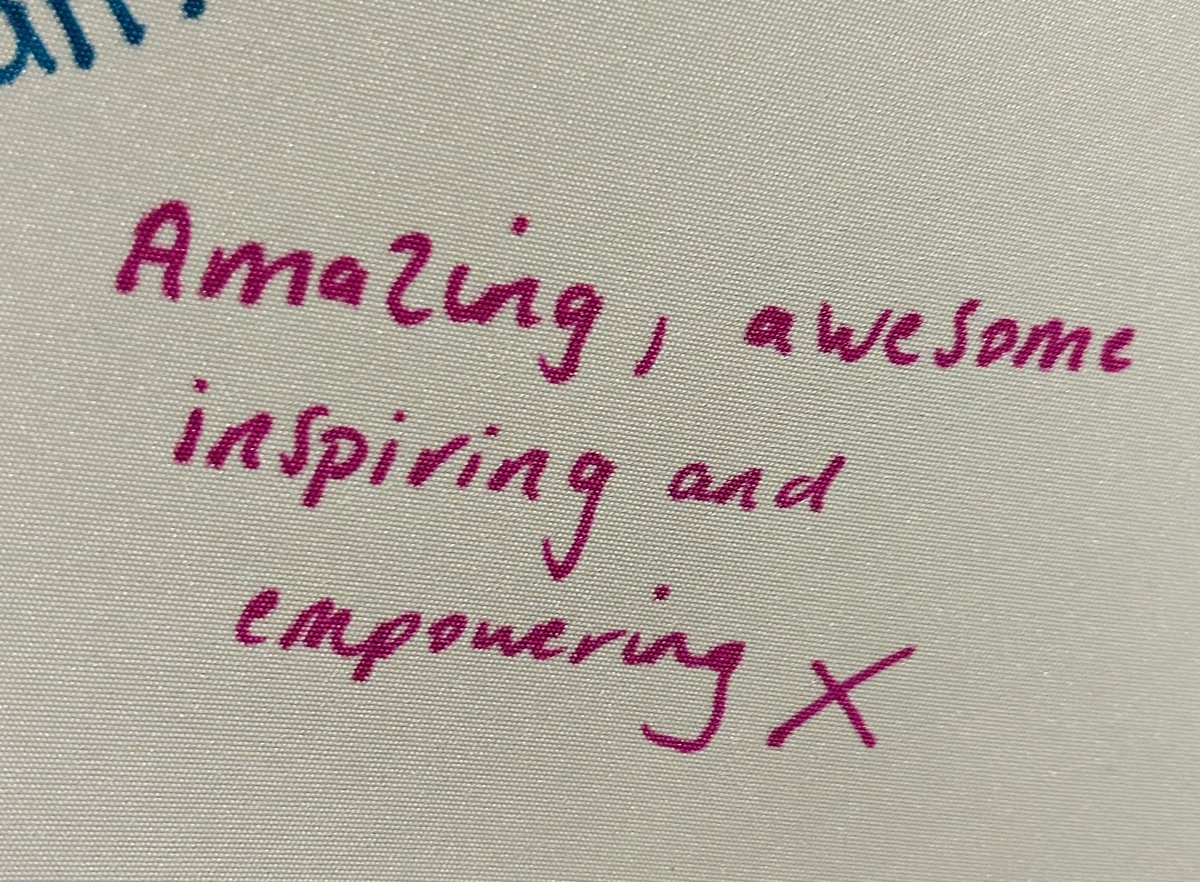 Amazing, awesome
inspiring and
empowering X